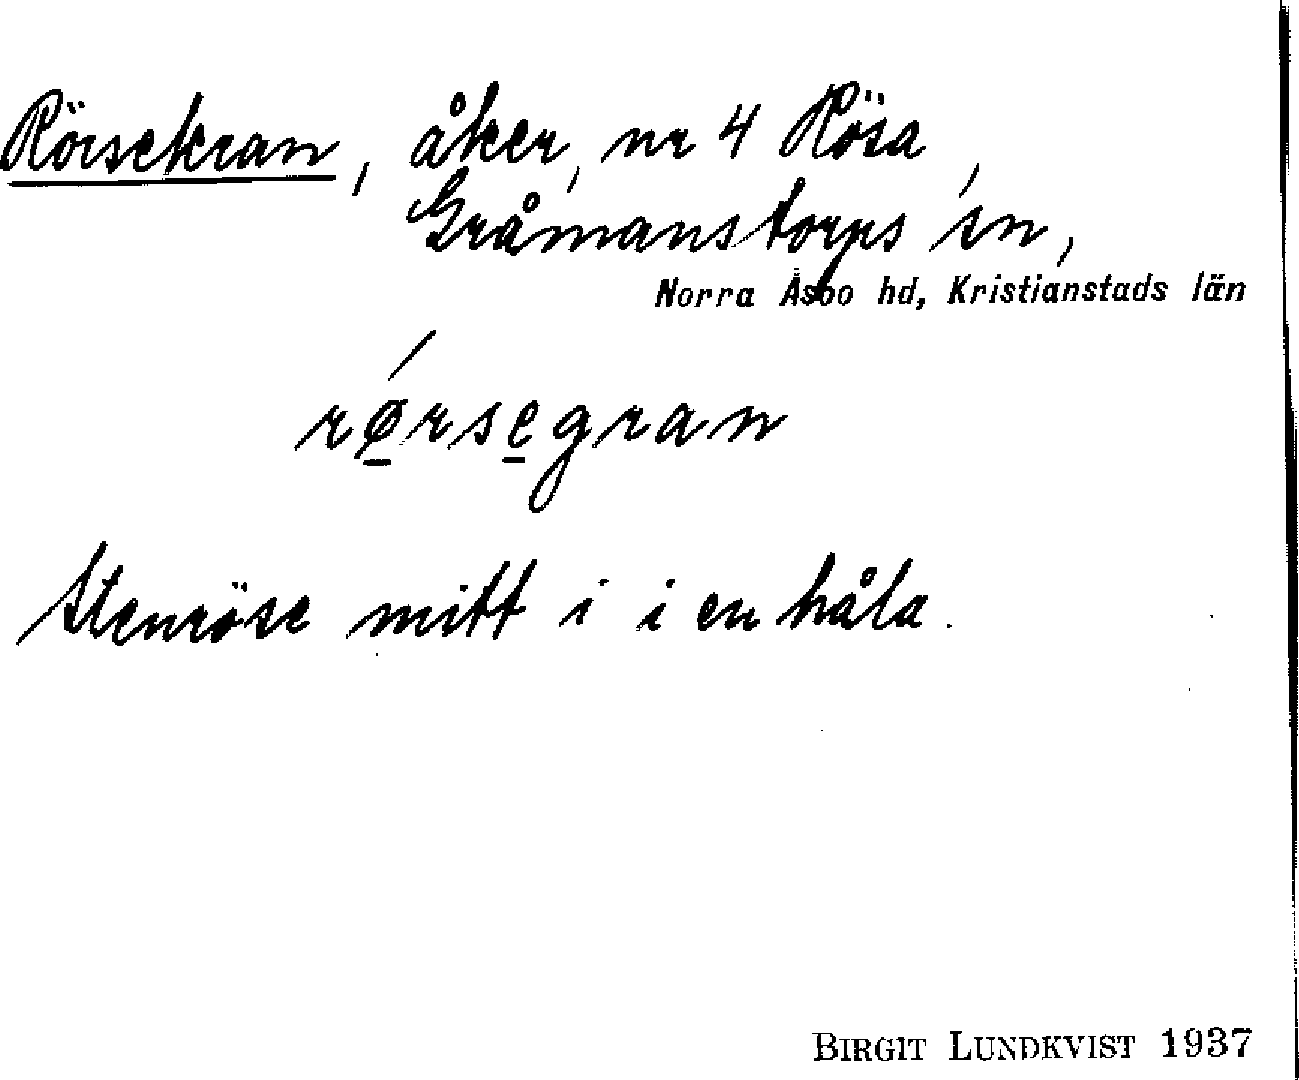 Rörsekran, åker, nr 4 Rösa,
Gråmanstorps sn,
Norra Åsbo hd, Kristianstads län
rø̲rse̲gran
Stenröse mitt i i en håla.
BIRGIT LUNDKVIST 1937